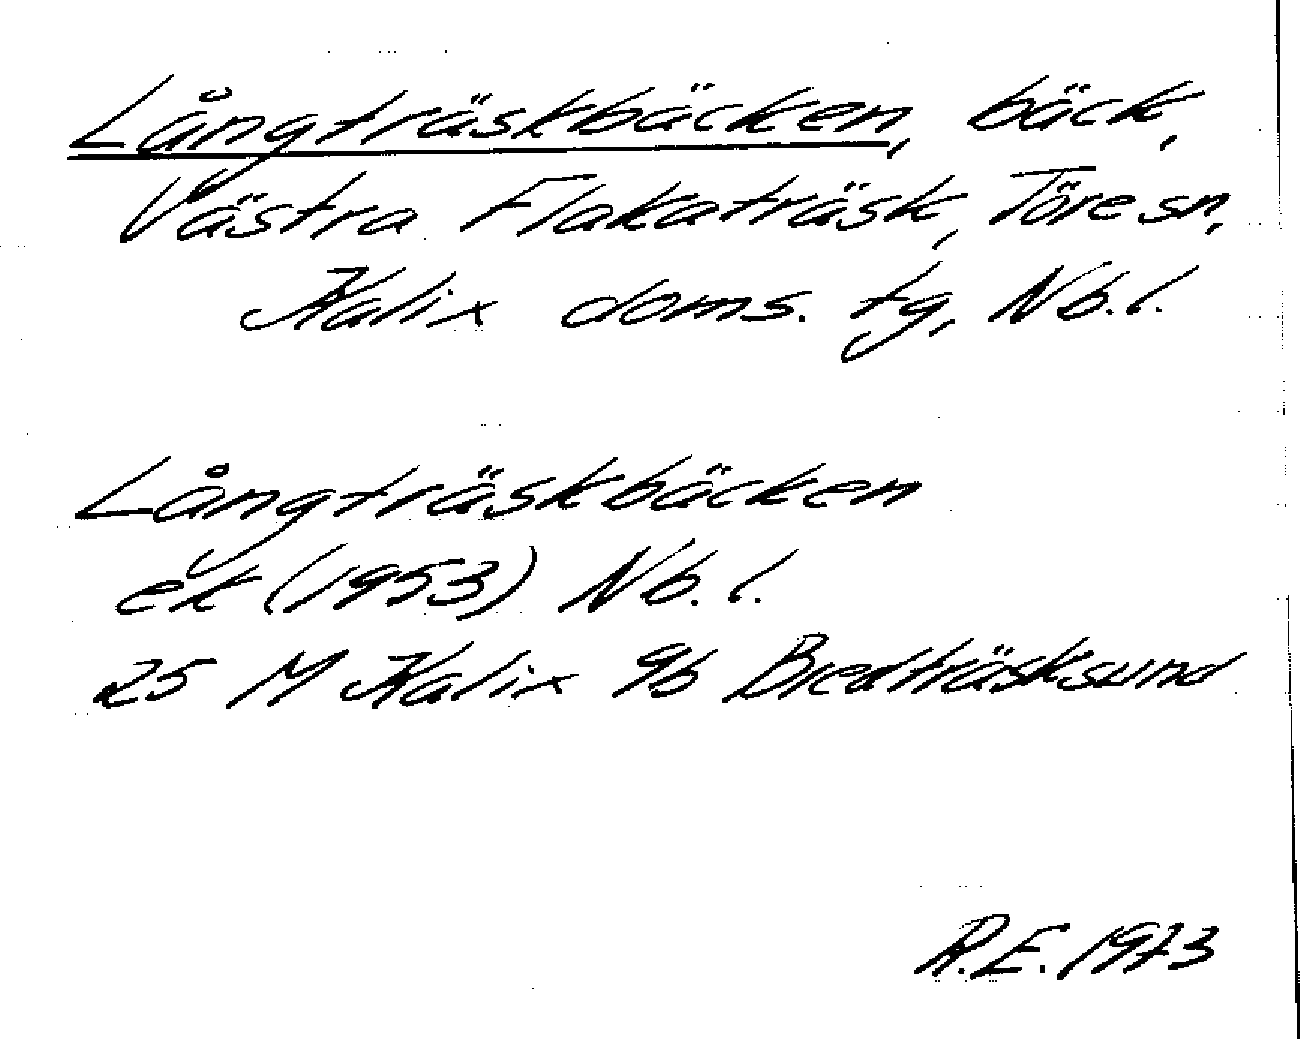 Långträskbäcken, bäck,
Västra Flakaträsk, Töre sn,
Kalix doms. tg, Nb. l.
Långträskbäcken
ek (1953) Nb. l.
25 M Kalix 9b Bredträsksund
R.E. 1973